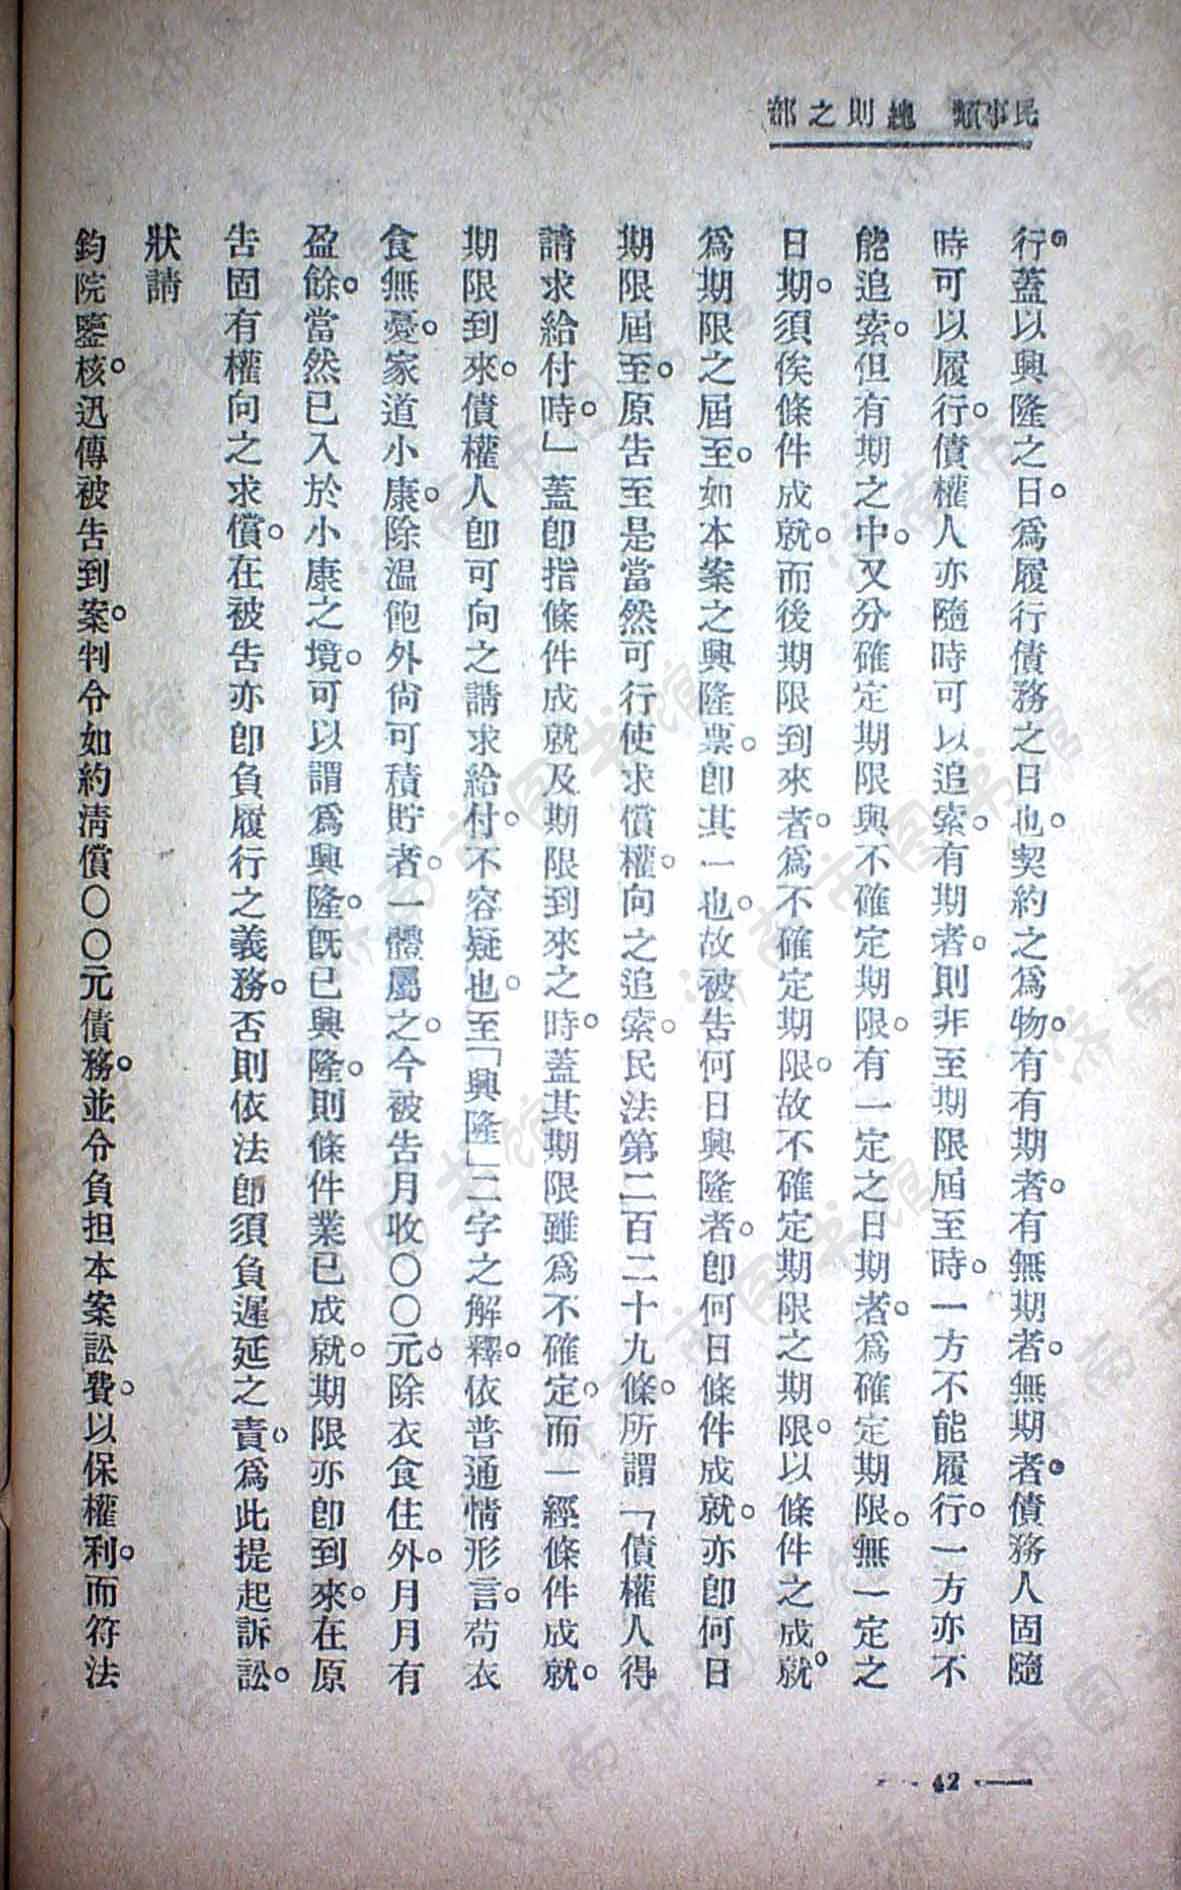 民事類　總則之部
行。蓋以興隆之日。爲履行債務之日也。契約之爲物。有有期者。有無期者。無期者。債務人固隨
時可以履行。債權人亦隨時可以追索。有期者。則非至期限屆至時。一方不能履行。一方亦不
能追索。但有期之中。又分確定期限與不確定期限。有一定之日期者。爲確定期限。無一定之
日期。須俟條件成就。而後期限到來者。爲不確定期限。故不確定期限之期限。以條件之成就。
爲期限之屆至。如本案之興隆票。卽其一也。故被告何日興隆者。卽何日條件成就。亦卽何日
期限屆至。原告至是當然可行使求償權。向之追索。民法第二百二十九條。所謂「債權人得
請求給付時。」蓋卽指條件成就及期限到來之時。蓋其期限雖爲不確定。而一經條件成就。
期限到來。債權人卽可向之請求給付。不容疑也。至「興隆」二字之解釋。依普通情形言。苟衣
食無憂。家道小康。除溫飽外尙可積貯者。一體屬之。今被告月收〇〇元。除衣食住外。月月有
盈餘。當然已入於小康之境。可以謂爲興隆。旣已興隆。則條件業已成就。期限亦卽到來。在原
告固有權向之求償。在被告亦卽負履行之義務。否則依法卽須負遲延之責。爲此提起訴訟。
狀請
鈞院鑒核。迅傳被告到案。判令如約淸償〇〇元債務。並令負担本案訟費。以保權利。而符法
42